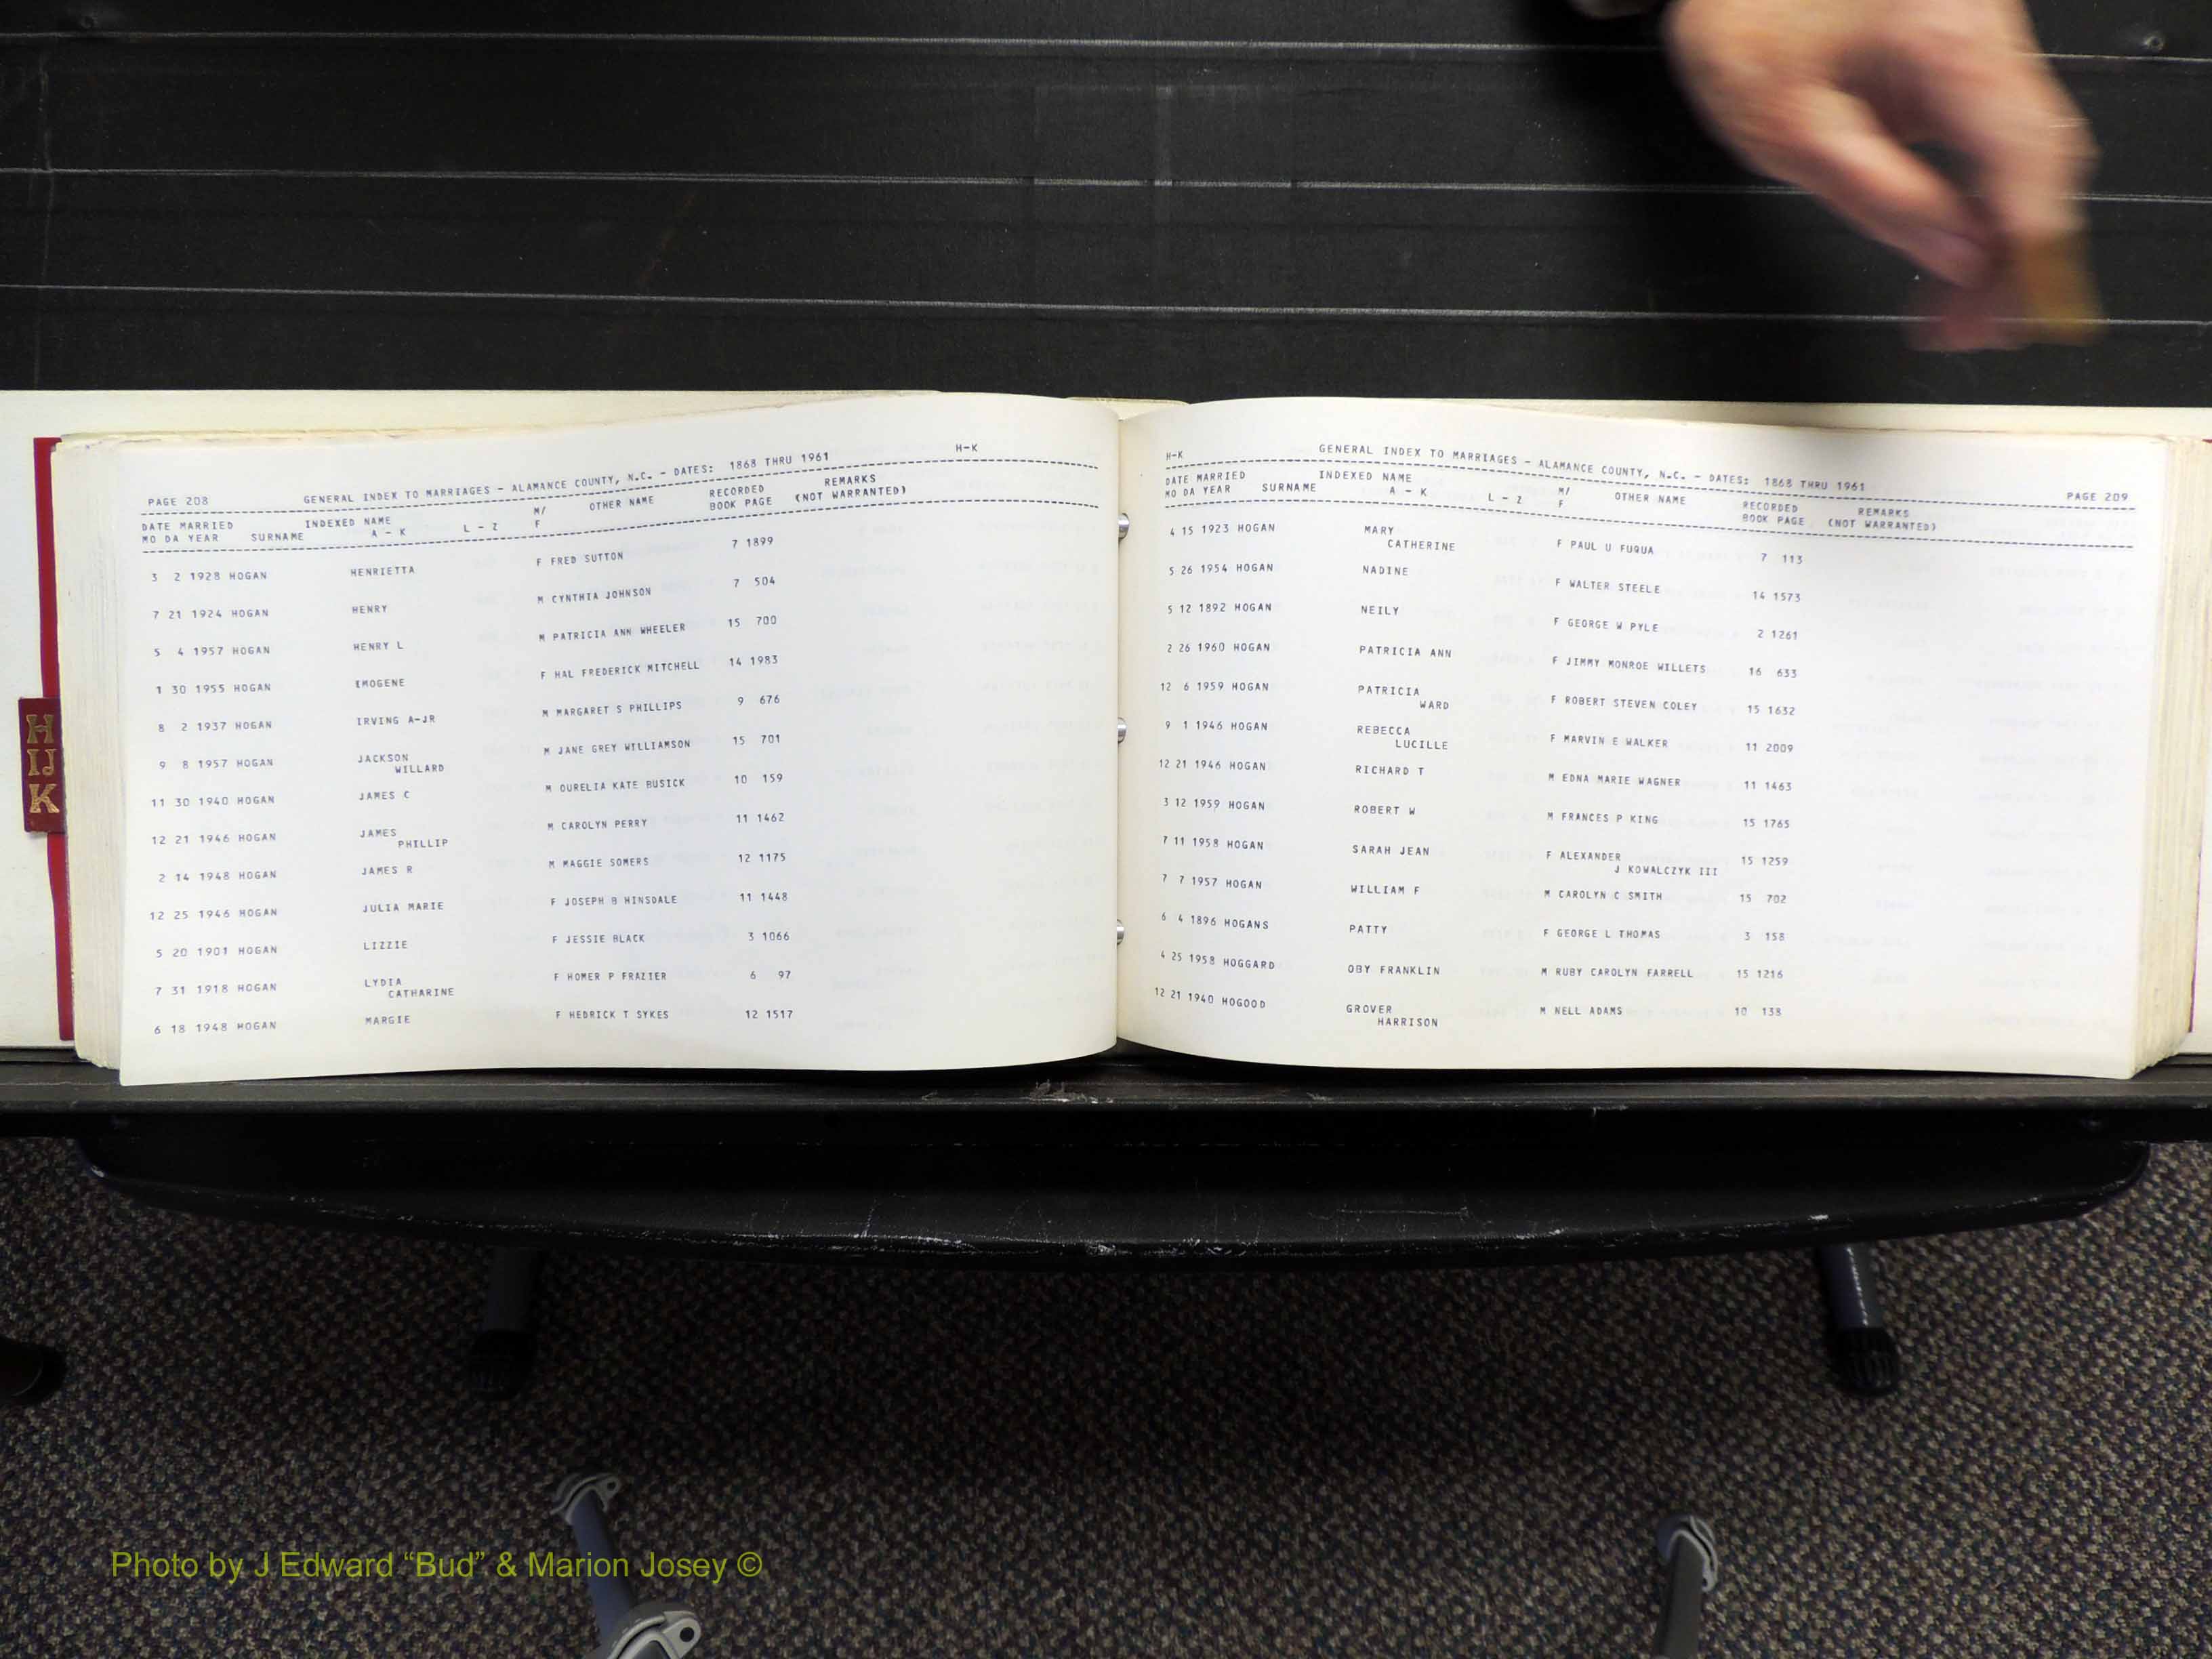 PAGE 208 GENERAL INDEX TO MARRIAGES - ALAMANCE COUNTY, N.C. - DATES: 1868 THRU 1961 H-K
DATE MARRIED INDEXED NAME M/ OTHER NAME RECORDED REMARKS
MO DA YEAR SURNAME A - K L - Z F BOOK PAGE (NOT WARRANTED)
3 2 1928 HOGAN HENRIETTA F FRED SUTTON 7 1899
7 21 1924 HOGAN HENRY M CYNTHIA JOHNSON 7 504
5 4 1957 HOGAN HENRY L M PATRICIA ANN WHEELER 15 700
1 30 1955 HOGAN IMOGENE F HAL FREDERICK MITCHELL 14 1983
8 2 1937 HOGAN IRVING A-JR M MARGARET S PHILLIPS 9 676
9 8 1957 HOGAN JACKSON M JANE GREY WILLIAMSON 15 701
WILLARD
11 30 1940 HOGAN JAMES C M OURELIA KATE BUSICK 10 159
12 21 1946 HOGAN JAMES M CAROLYN PERRY 11 1462
PHILLIP
2 14 1948 HOGAN JAMES R M MAGGIE SOMERS 12 1175
12 25 1946 HOGAN JULIA MARIE F JOSEPH B HINSDALE 11 1448
5 20 1901 HOGAN LIZZIE F JESSIE BLACK 3 1066
7 31 1918 HOGAN LYDIA F HOMER P FRAZIER 6 97
CATHARINE
6 18 1948 HOGAN MARGIE F HEDRICK T SYKES 12 1517
H-K GENERAL INDEX TO MARRIAGES - ALAMANCE COUNTY, N.C. - DATES: 1868 THRU 1961 PAGE 209
DATE MARRIED INDEXED NAME M/ OTHER NAME RECORDED REMARKS
MO DA YEAR SURNAME A - K L - Z F BOOK PAGE (NOT WARRANTED)
4 15 1923 HOGAN MARY F PAUL U FUQUA 7 113
CATHERINE
5 26 1954 HOGAN NADINE F WALTER STEELE 14 1573
5 12 1892 HOGAN NEILY F GEORGE W PYLE 2 1261
2 26 1960 HOGAN PATRICIA ANN F JIMMY MONROE WILLETS 16 633
12 6 1959 HOGAN PATRICIA F ROBERT STEVEN COLEY 15 1632
WARD
9 1 1946 HOGAN REBECCA F MARVIN E WALKER 11 2009
LUCILLE
12 21 1946 HOGAN RICHARD T M EDNA MARIE WAGNER 11 1463
3 12 1959 HOGAN ROBERT W M FRANCES P KING 15 1765
7 11 1958 HOGAN SARAH JEAN F ALEXANDER 15 1259
J KOWALCZYK III
7 7 1957 HOGAN WILLIAM F M CAROLYN C SMITH 15 702
6 4 1896 HOGANS PATTY F GEORGE L THOMAS 3 158
4 25 1958 HOGGARD OBY FRANKLIN M RUBY CAROLYN FARRELL 15 1216
12 21 1940 HOGOOD GROVER M NELL ADAMS 10 138
HARRISON
H
IJ
K
Photo by J Edward “Bud” & Marion Josey ©